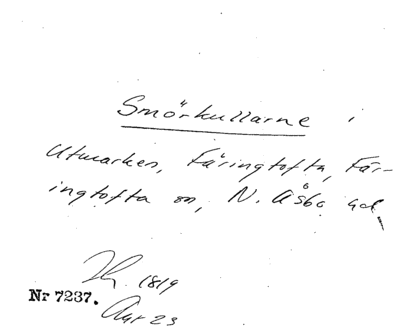 Smörkullarne i
Utmarken, Färingtofta, Fär-
ingtofta sn, N. Åsbo hd
1819
Nr 7237.
23